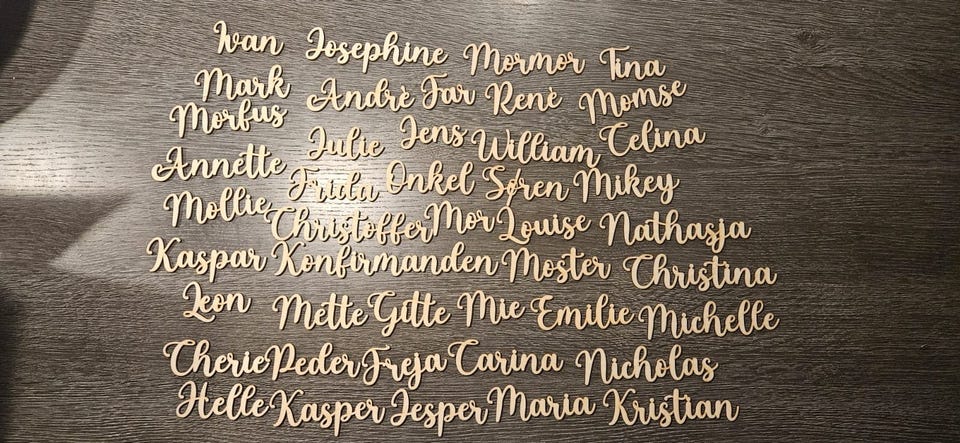 Ivan Josephine Mormor Tina
Mark Andrè Far Renè Momse
Morfus Julie Jens William Celina
Annette Frida Onkel Søren Mikey
Mollie Christoffer Mor Louise Nathasja
Kaspar Konfirmanden Moster Christina
Leon Mette Gitte Mie Emilie Michelle
Cherie Peder Freja Carina Nicholas
Helle Kasper Jesper Maria Kristian